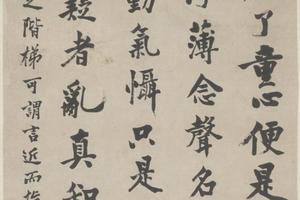 了童心便是
薄念聲名
氣懾只是
疑者亂真知
之階梯可謂言近而指